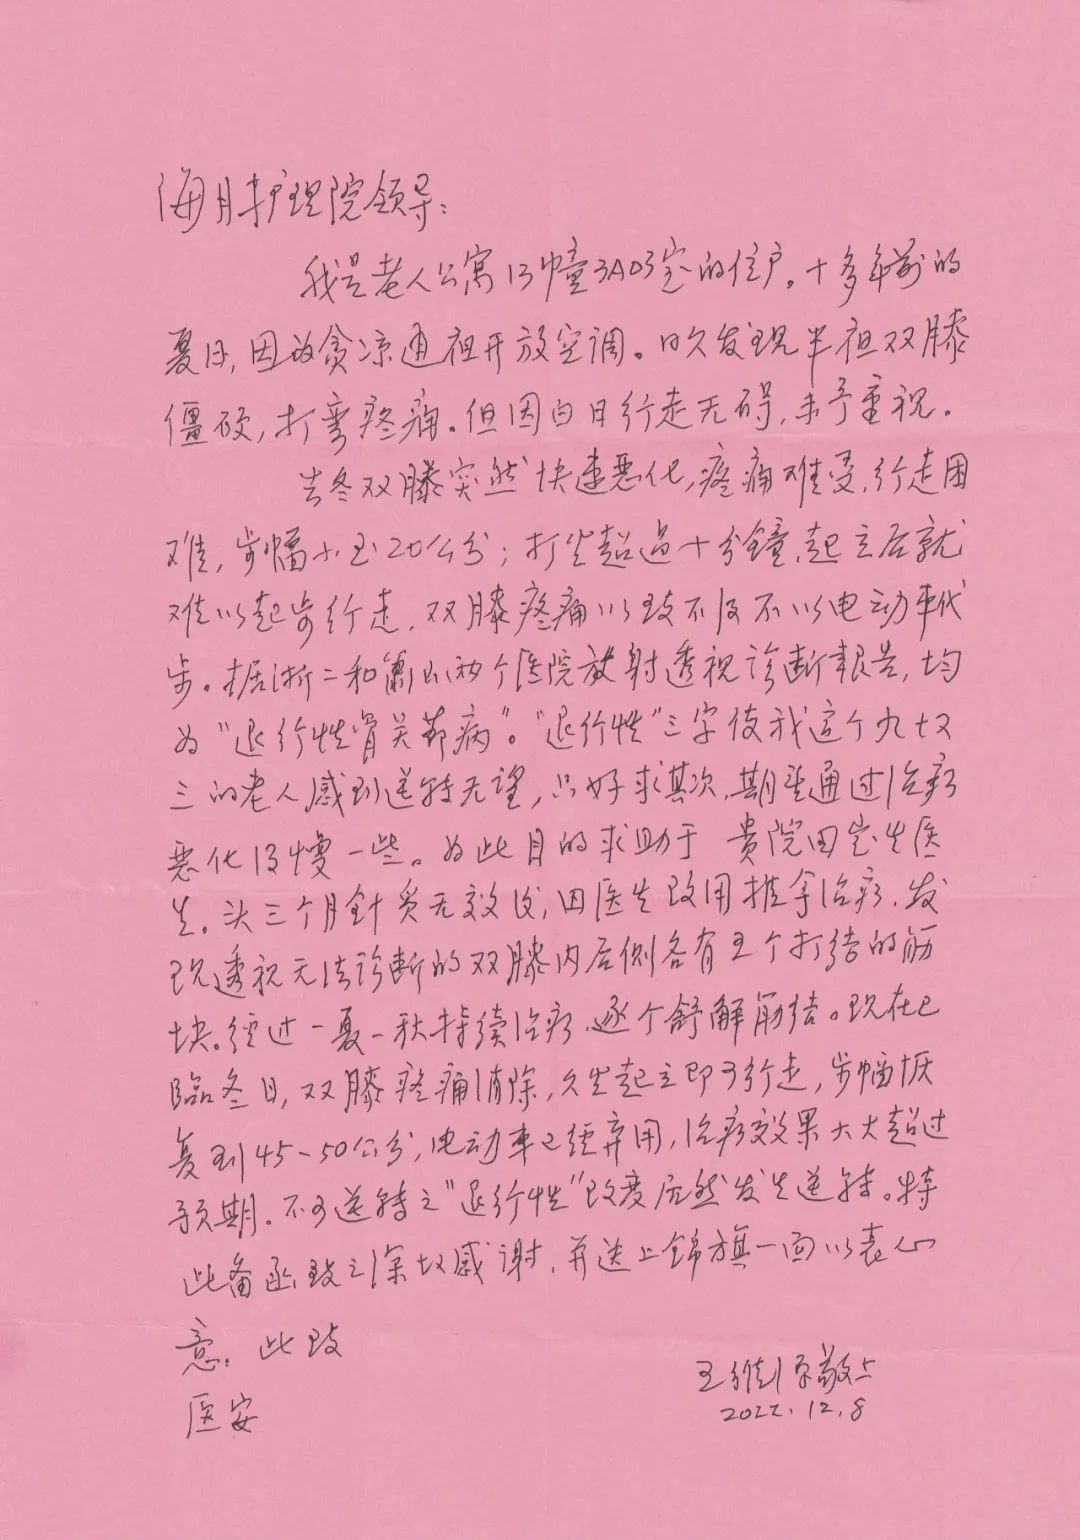 海月护理院领导：
我是老人公寓13幢3A03室的住户。十多年前的
夏日，因为贪凉通宵开放空调。日久发现半夜双膝
僵硬，打弯疼痛。但因白日行走无碍，未予重视。
去冬双膝突然快速恶化，疼痛难受，行走困
难，步幅小至20公分；打坐超过十分鐘，起立后就
难以起步行走，双膝疼痛以致不得不以电动车代
步。据浙二和萧山两个医院放射透视诊断報告，均
为“退行性骨关节病”。“退行性”三字使我这个九十又
三的老人感到逆转无望，只好求其次，期望通过治疗
恶化得慢一些。为此目的求助于 贵院田 医
生。头三个月针灸无效后，田医生改用推拿治疗，发
现透视无法诊断的双膝内后侧各有五个打结的筋
块。经过一夏一秋持续治疗，逐个舒解筋结。现在已
臨冬日，双膝疼痛消除，久坐起立即可行走，步幅恢
复到45-50公分，电动车已经弃用，治疗效果大大超过
预期。不可逆转之“退行性”改变居然发生逆转。特
此备函致之深切感谢，并送上锦旗一面以表心
意。此致
医安
王 敬上
2022.12.8